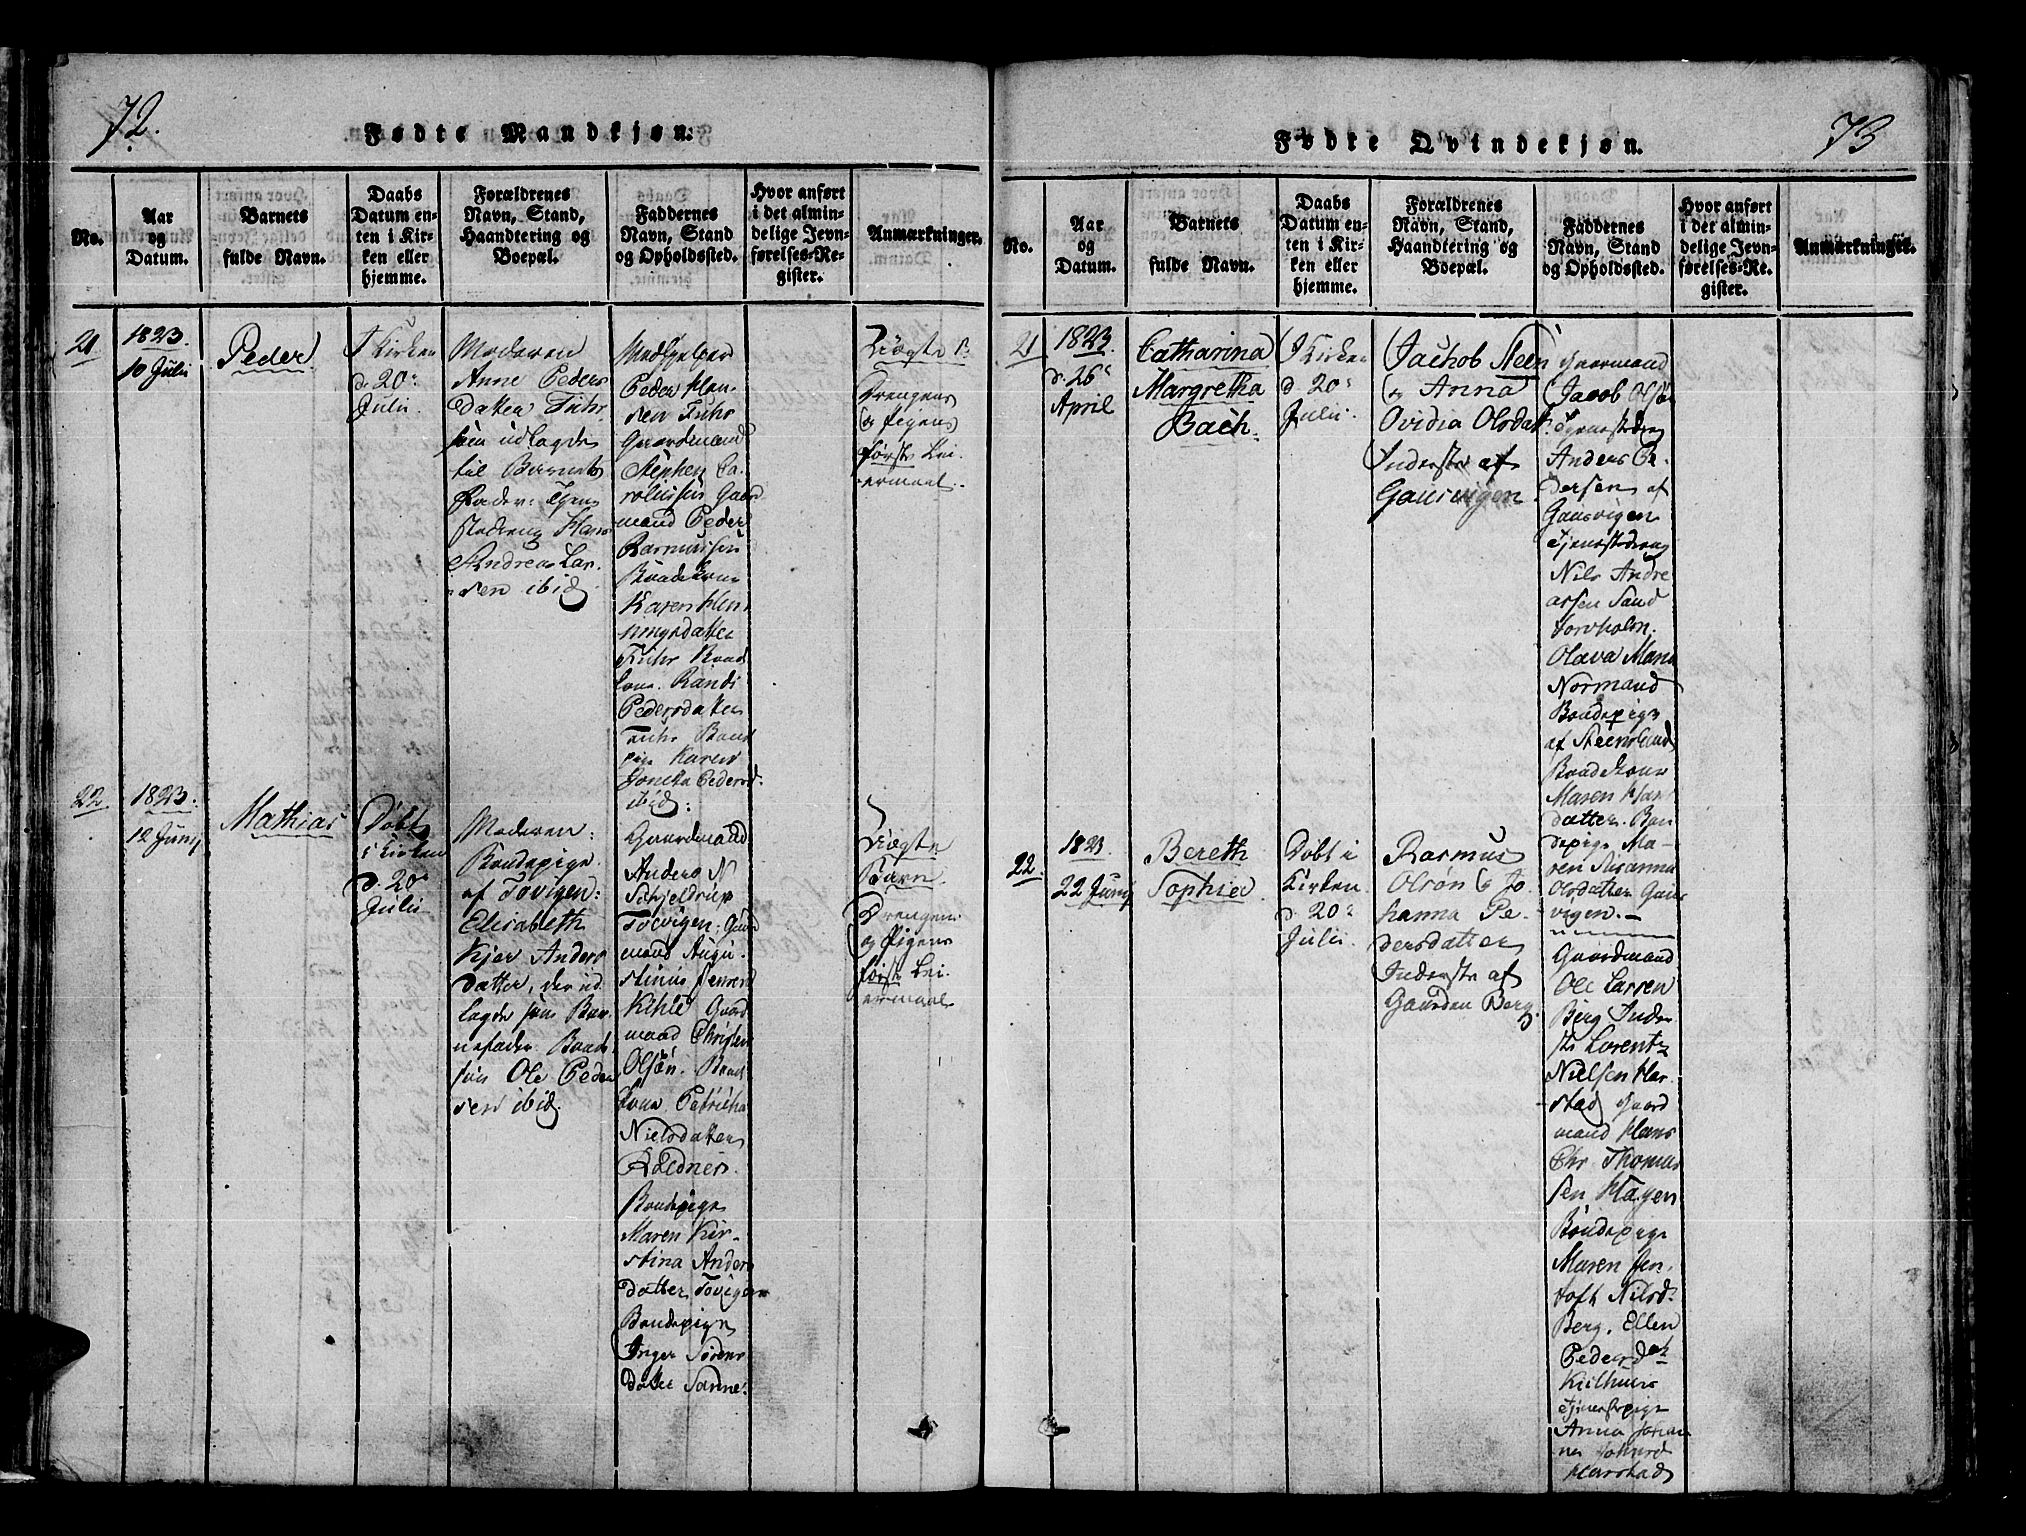 72.
Fødte Mandkjøn.
No.
Aar
og
Datum.
Barnets
fulde Navn.
Daabs
Datum en-
ten i Kir-
ken eller
hjemme.
Forældrenes
Navn, Stand,
Haandtering og
Boepæl.
Faddernes
Navn, Stand
og Opholdssted.
Hvor anført
i det almin-
delige Jevn-
førelses-Re-
gister.
Anmærkninger.
21
1823.
10 Julii
Peder
I Kirken
d. 20
Julii.
Moderen
Anne Peders
Datter Fuhr
som udlagde
til Barnets
Fader: Tjene
stedreng Hans
Andreas Lar-
sen ibid
Peder Han-
sen Fuhr
Gaardmand
Stephen Ca-
rolussen Gaard
mand Peder
Rasmussen
Bondekone
Karen Hen
ningsdatter
Fuhr Bond
kone Randi
Pedersdatter
Fuhr Bond
pige Karen
Pedersd.
ibid:
Uægte
Drengens
og Pigens
første Lei-
ermaal.
22
1823.
12 Junij
Mathias
Døbt
i Kirken
d. 20
Julii
Moderen:
Bondepige
af Tovigen:
Elisabeth
Kjer Anders
datter, der ud
lagde som Bar-
nefader Bonde
søn Ole Peder
sen ibid.
Gaardmand
Anders N
Schjeldrup
Tovigen: Gaard
mand Augu-
stinus Jensen
Kihle Gaard
mand Christen
Olsøn. Bond
kone Petricha
Nielsdatter
Bondepige
Maren Kir-
stina Anders
datter Tovigen
Bondepige
Inger Sørens
datter Sanne:
Uægte
Barn
Drengens
og Pigens
første Lei-
ermaal
73
Fødte Qvindekjøn.
No.
Aar
og
Datum.
Barnets
fulde Navn.
Daabs
Datum en-
ten i Kir-
ken eller
hjemme.
Forældrenes
Navn, Stand,
Haandtering og
Boepæl.
Faddernes
Navn, Stand
og Opholdssted.
Hvor anført
i det almin-
delige Jevn-
førelses-Re-
gister.
Anmærkninger.
21
1823.
d. 26
April
Catharina
Margretha
Bach.
I Kirken
d. 20
Julii.
Jachob Steen
og Anna
Ovidia Olsdatt.
Inderste af
Gausvigen
Gaarmand
Jacob Olsøn
Tjenestdreng
Anders Pe-
dersen af
Gausvigen
Tjenestdreng
Nils Andre
assen Sand
torvholm.
Olava Maria
Normand
Bondepige
af Steensland
Bondekone
Maren Han
datter. Bon
depige Ma-
ren Susanna
Olsdatter Gaus
vigen.
22.
1823
22 Junij
Bereth
Sophia
Døbt i
Kirken
d. 20
Julii.
Rasmus
Olsøn og Jo-
hanna Pe-
dersdatter
Inderste af
Gaarden Berg.
Gaardmand
Ole Larsen
Berg Inder
ste Lorentz
Nielsen Har-
stad Gaard
mand Hans
Chr Thomas
sen Hagen
Bondepige
Maren Jen-
toft Nilsd.
Berg. Ellen
Pedersdatt
Kielhuus
Tjenestepige
Anna Johan
na
Harstad